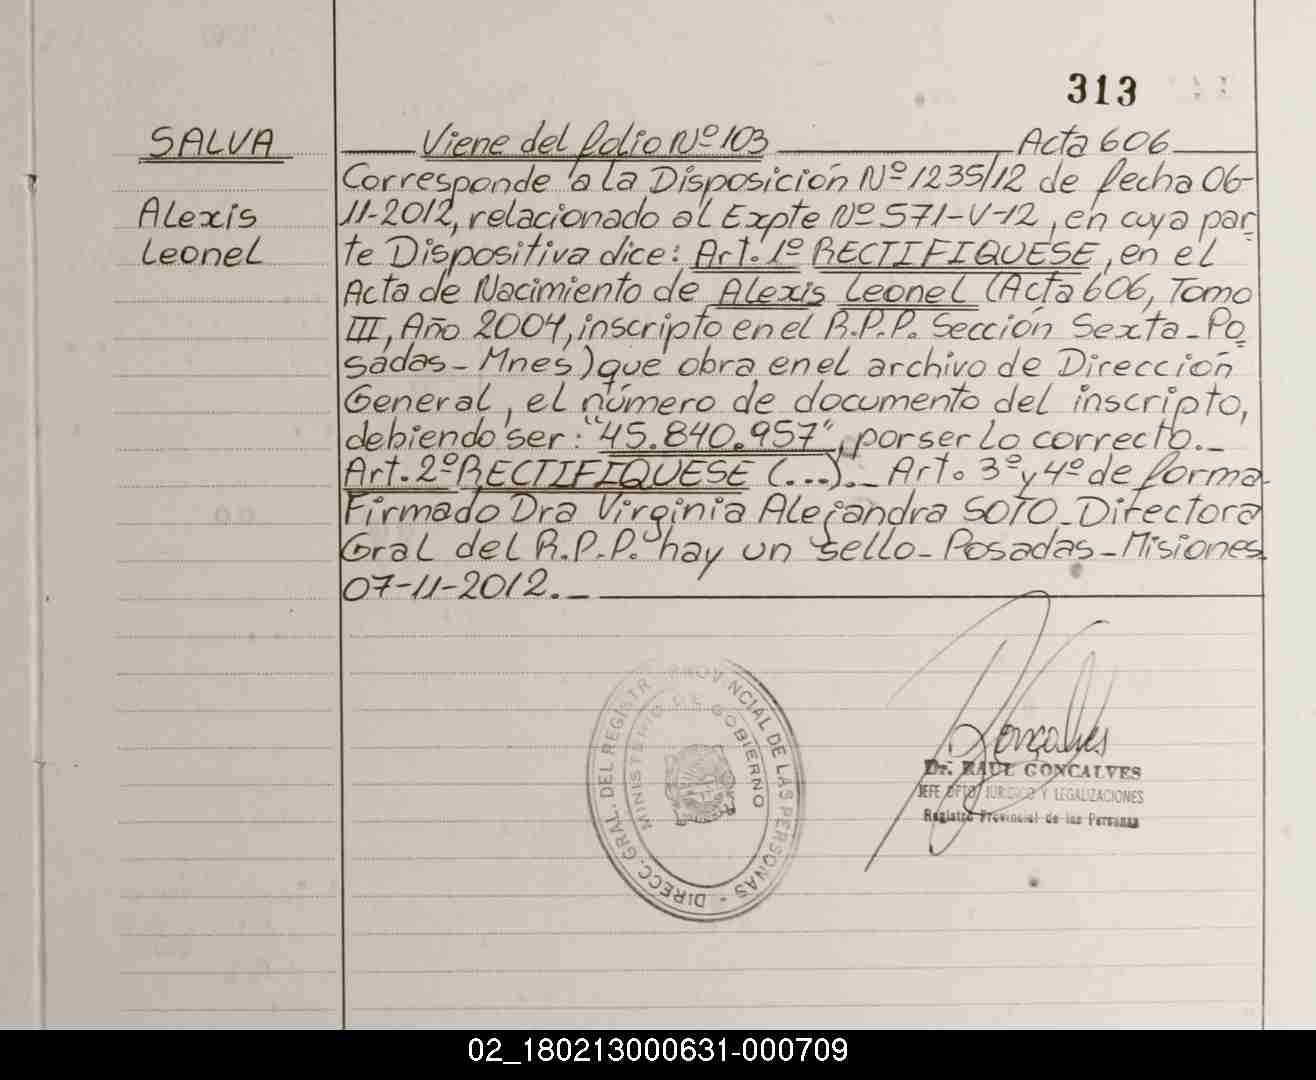 313
SALVA
Alexis
Leonel
Viene del folio Nº 103 Acta 606
Corresponde a la Disposición Nº 1235/12 de fecha 06-
11-2012, relacionado al Expte Nº 571-V-12, en cuya par
te Dispositiva dice: Art. 1º RECTIFIQUESE, en el
Acta de Nacimiento de Alexis Leonel (Acta 606, Tomo
III, Año 2004, inscripto en el R.P.P. Sección Sexta-Po
sadas-Mnes) que obra en el archivo de Dirección
General, el número de documento del inscripto,
debiendo ser: "45.840.957", por ser lo correcto._
Art. 2º RECTIFIQUESE (...)._ Art. 3º y 4º de forma-
Firmado Dra Virginia Alejandra SOTO_Directora
Gral del R.P.P. hay un sello-Posadas-Misiones
07-11-2012._
DIRECC. GRAL. DEL REGISTR PROVINCIAL DE LAS PERSONAS -
MINISTERIO DE GOBIERNO
Goncalves
Dr. RAUL GONCALVES
JEFE DPTO JURIDICO Y LEGALIZACIONES
Registro Provincial de las Personas
02_180213000631-000709